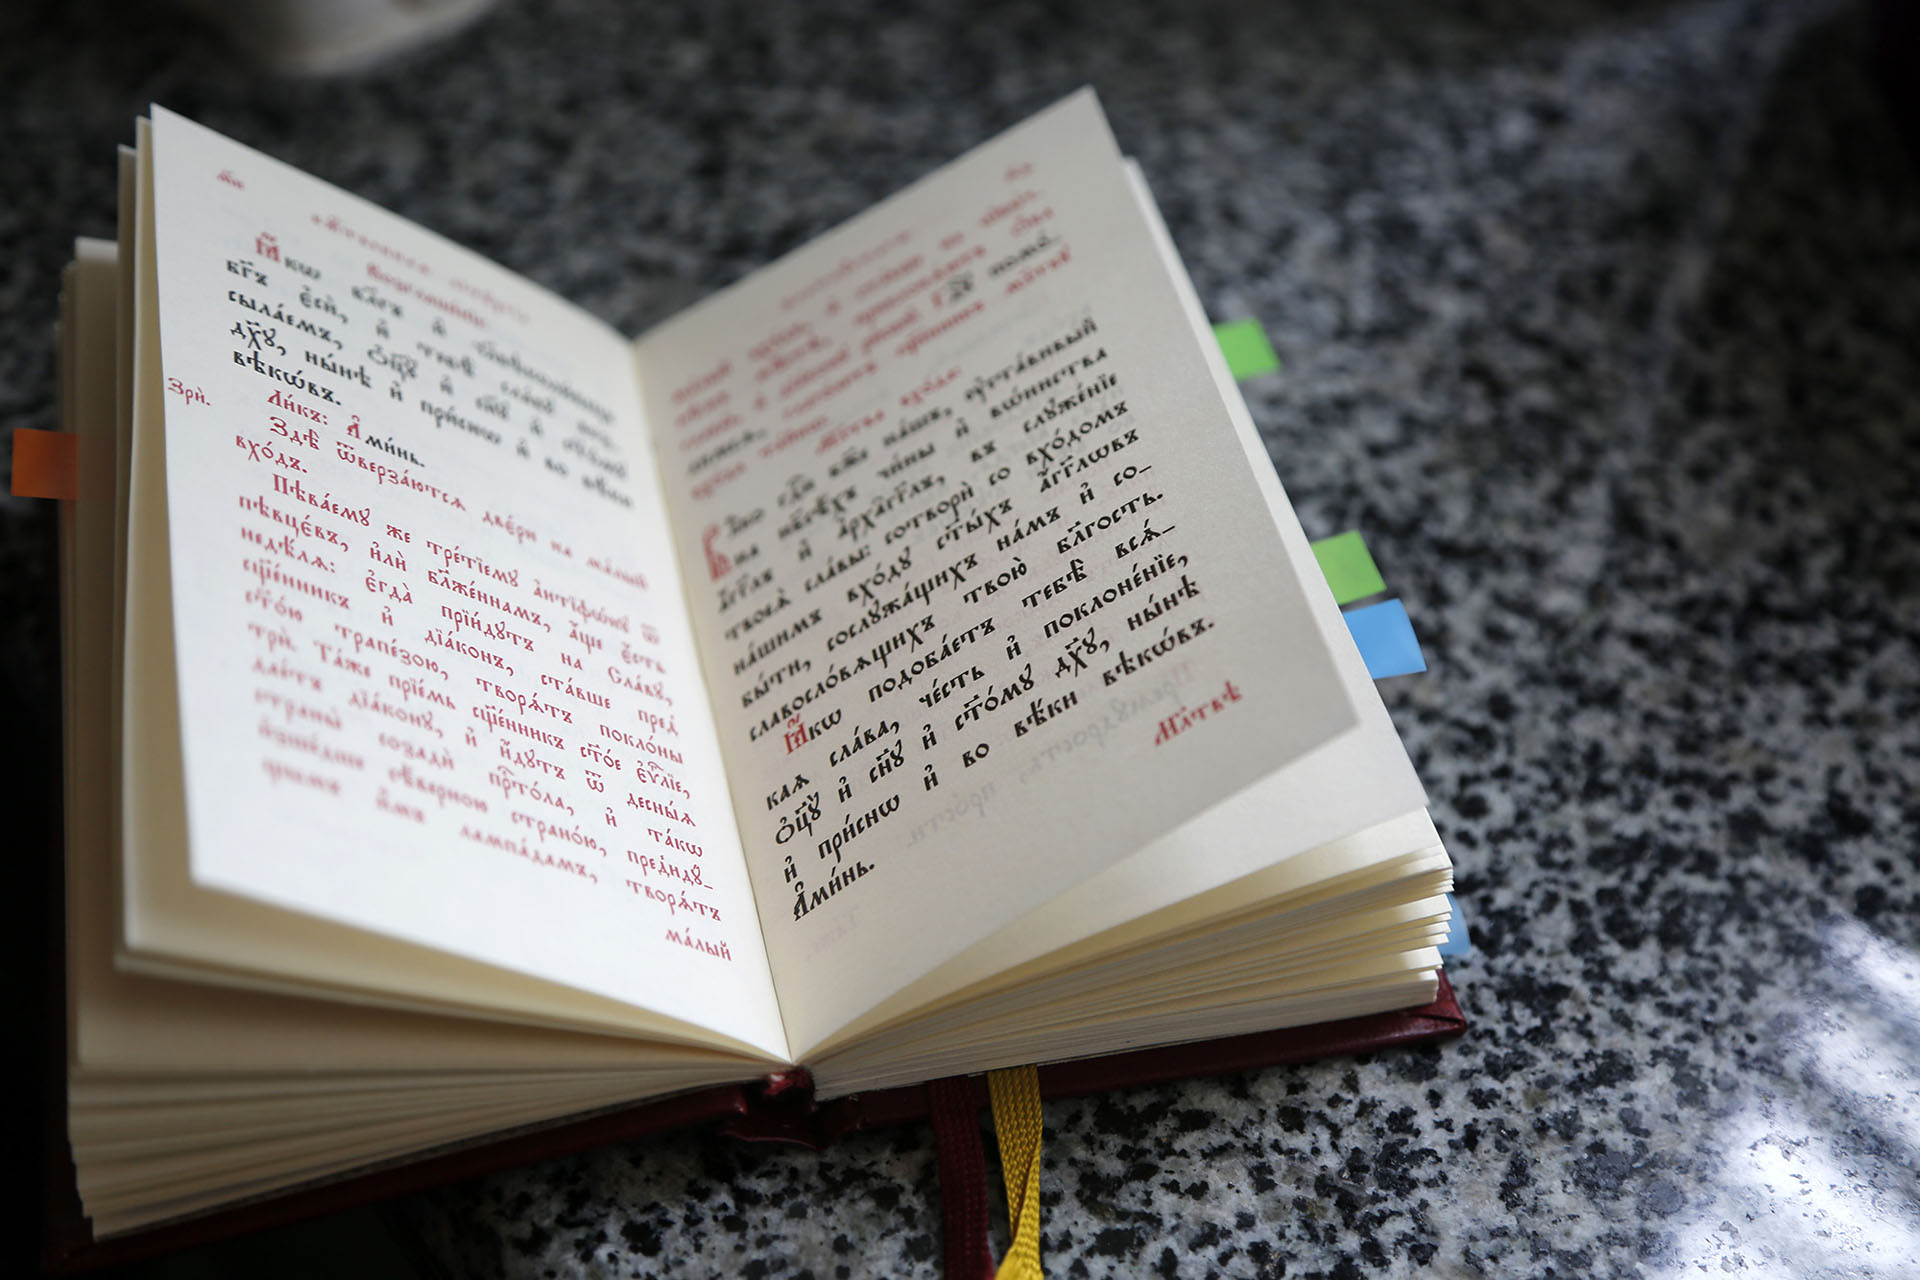 Ꙗ҆́кѡ бл҃гъ и҆
бг҃ъ є҆сѝ, и҆ тебѣ̀ сла́вꙋ воз-
сыла́емъ, ѻ҆ц҃ꙋ̀ и҆ сн҃ꙋ и҆ ст҃о́мꙋ
дх҃ꙋ, ны́нѣ и҆ при́снѡ и҆ во вѣ́ки
вѣкѡ́въ.
Ли́къ: А҆ми́нь.
Зрѝ. Здѣ̀ ѿверза́ютсѧ две́ри на ма́лый
вхо́дъ.
Пѣва́емꙋ же тре́тїемꙋ а҆нтїфѡ́нꙋ ѿ
пѣвцє́въ, и҆лѝ бл҃жє́ннамъ, а҆́ще є҆́сть
недѣ́лѧ: є҆гда̀ прїи́дꙋтъ на Сла́вꙋ,
сщ҃е́нникъ и҆ дїа́конъ, ста́вше пред̾
ст҃о́ю трапе́зою, творѧ́тъ покло́ны
трѝ. Та́же прїе́мь сщ҃е́нникъ ст҃о́е є҆ѵⷢ҇лїе,
дае́тъ дїа́конꙋ, и҆ и҆́дꙋтъ ѿ десны́ѧ
страны̀ созадѝ прⷭ҇то́ла, и҆ та́кѡ
и҆зше́дше сѣ́верною страно́ю, пред̾идꙋ́-
щымъ и҆̀мъ лампа́дамъ, творѧ́тъ
ма́лый
Мл҃тва вхо́да:
Влⷣко гдⷭ҇и бж҃е на́шъ, ᲂу҆ста́вивый
на нб҃сѣ́хъ чи́ны и҆ вѡ́инства
а҆́гг҃лъ и҆ а҆рха́гг҃лъ, въ слꙋже́нїе
твоеѧ̀ сла́вы: сотворѝ со вхо́домъ
на́шимъ вхо́дꙋ ст҃ы́хъ а҆́гг҃лѡвъ
бы́ти, сослꙋжа́щихъ на́мъ и҆ со-
славосло́вѧщихъ твою̀ бл҃гость.
Ꙗ҆́кѡ подоба́етъ тебѣ̀ всѧ́-
каѧ сла́ва, че́сть и҆ поклоне́нїе,
ѻ҆ц҃ꙋ̀ и҆ сн҃ꙋ и҆ ст҃о́мꙋ дх҃ꙋ, ны́нѣ
и҆ при́снѡ и҆ во вѣ́ки вѣкѡ́въ.
А҆ми́нь.
Мл҃твѣ